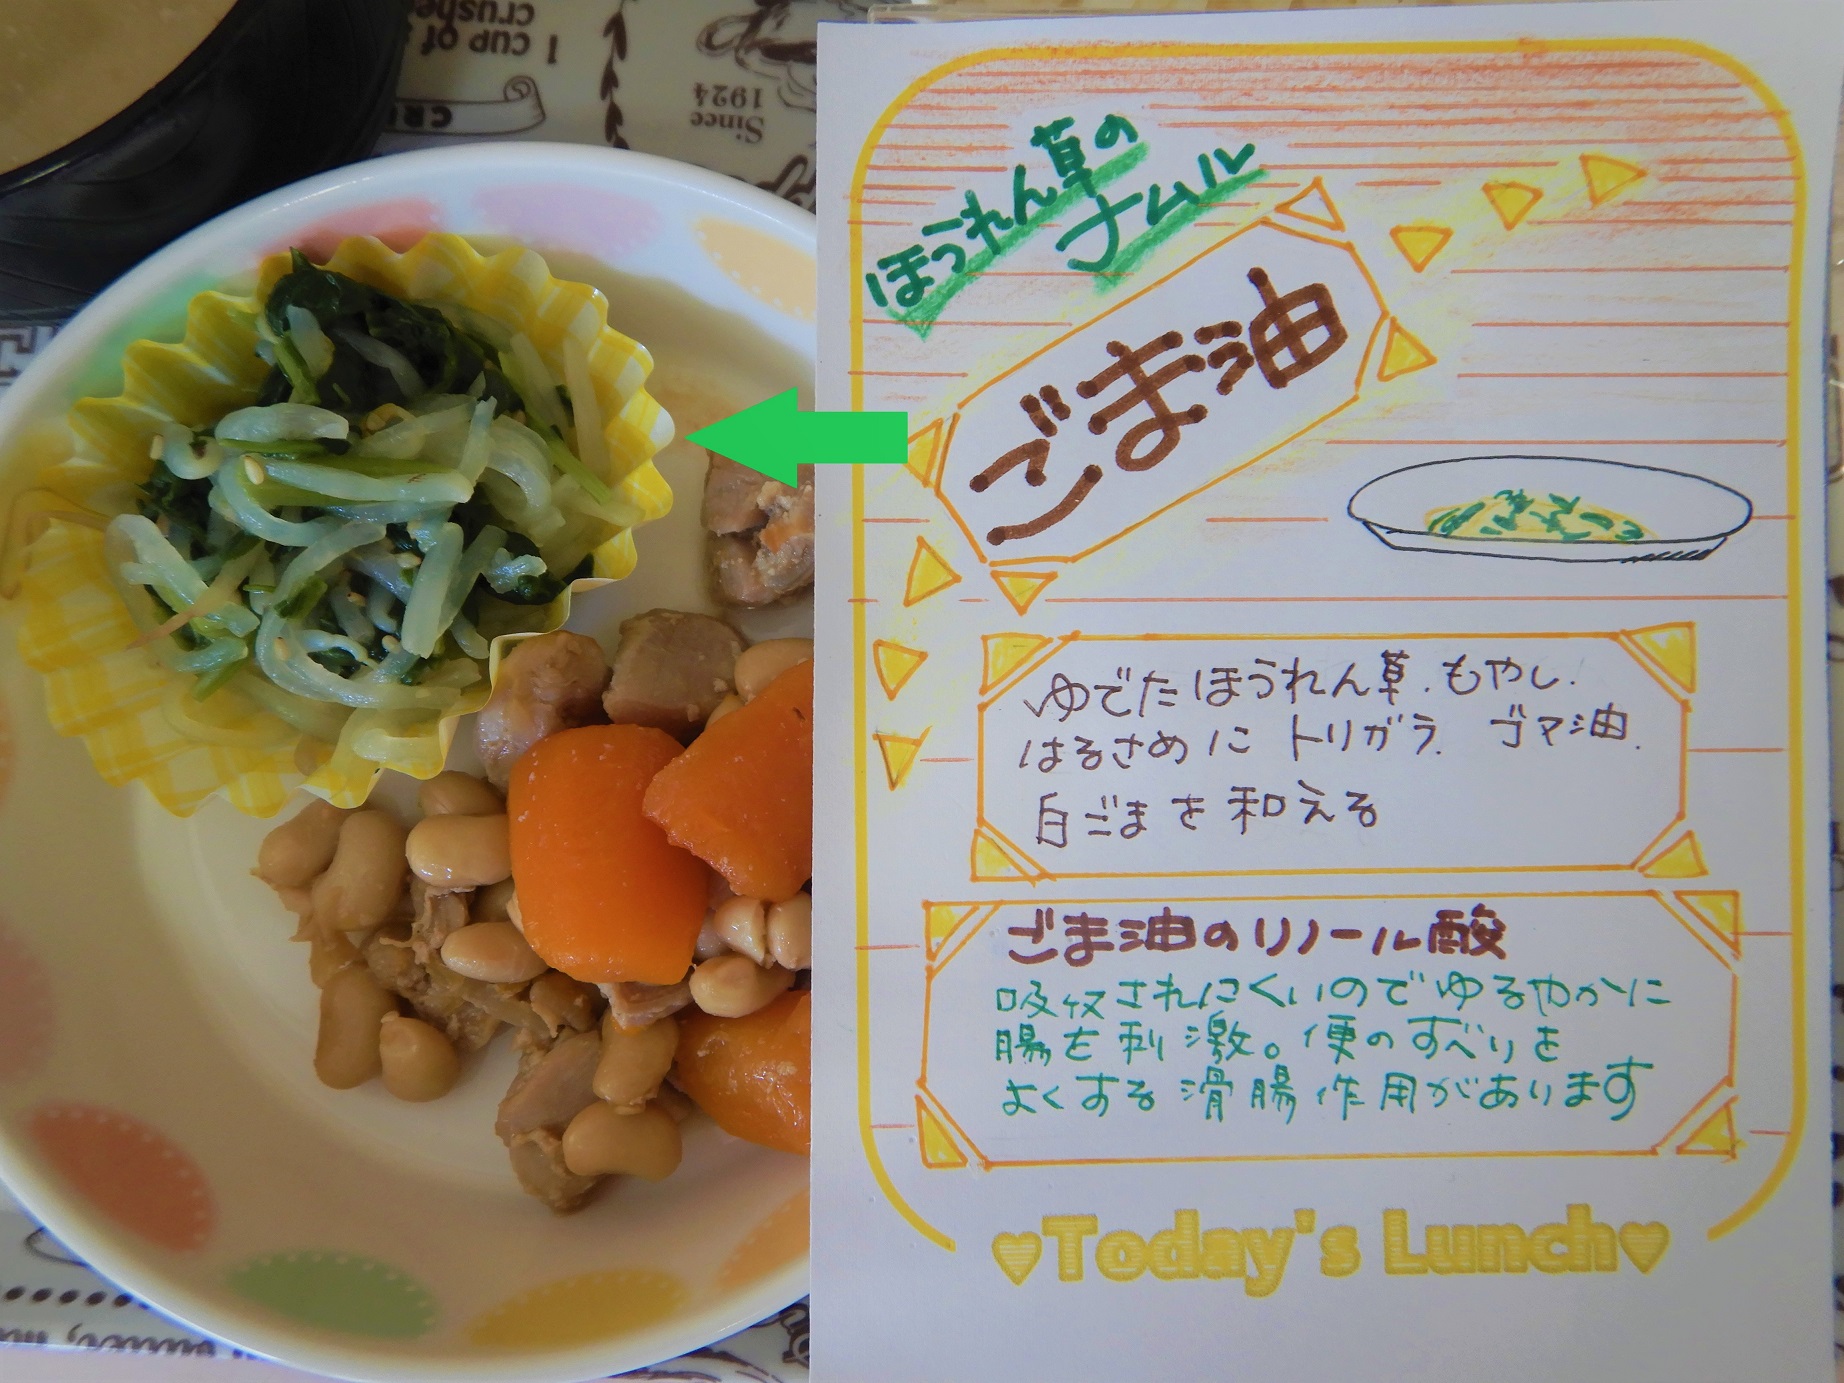 1 cup of
crushe
CR
Since
1924
ほうれん草の
ナムル
ごま油
ゆでたほうれん草.もやし.
はるさめにトリガラ.ゴマ油.
白ごまを和える
ごま油のリノール酸
吸収されにくいのでゆるやかに
腸を刺激。便のすべりを
よくする滑腸作用があります
♥Today's Lunch♥